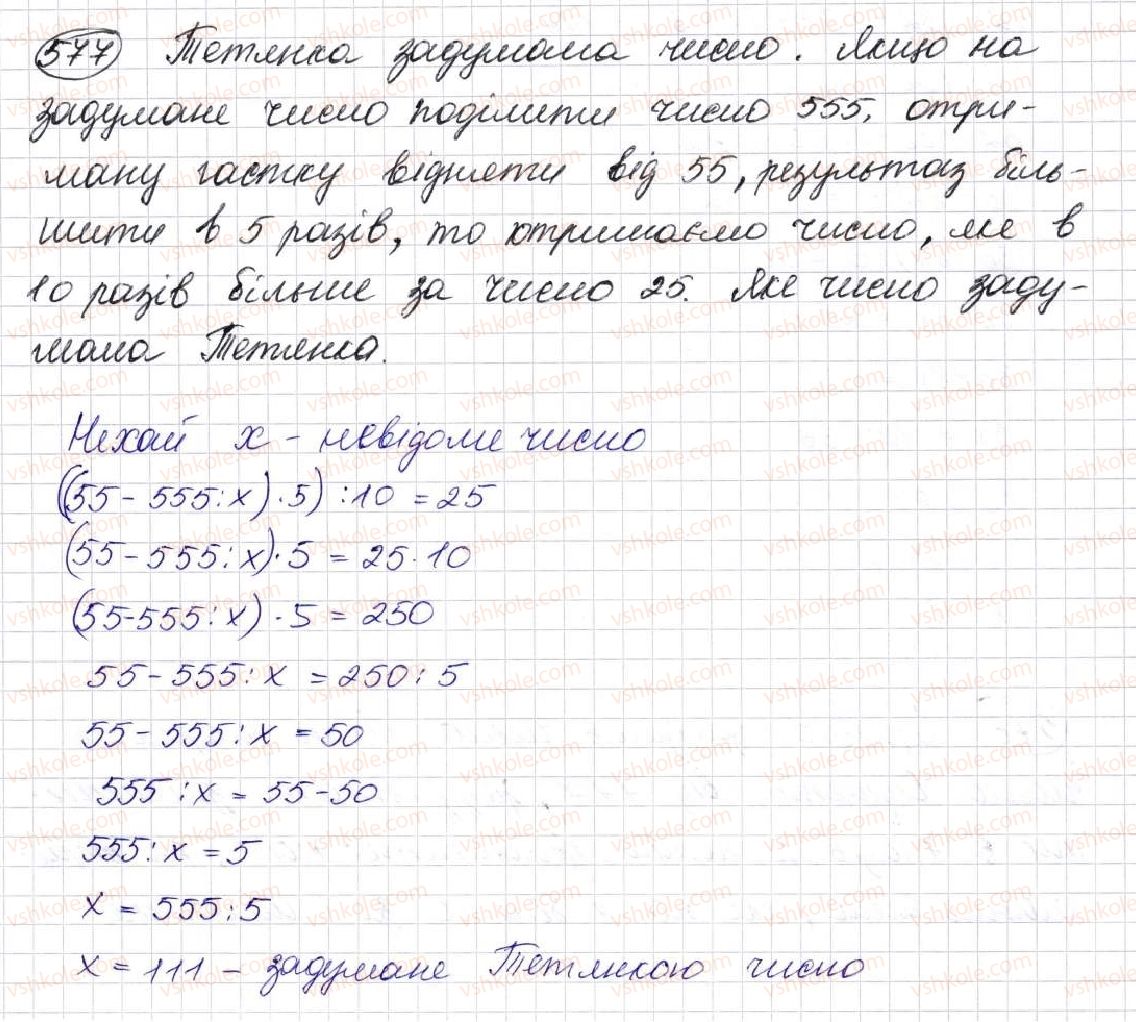 577 Тетянка задумала число. Якщо на
задумане число поділити число 555, отри-
ману частку відняти від 55, результаз біль-
шити в 5 разів, то отримаємо число, яке в
10 разів більше за число 25. Яке число заду-
мала Тетянка.
Нехай х - невідоме число
((55 - 555 : х) · 5) : 10 = 25
(55 - 555 : х) · 5 = 25 · 10
(55 - 555 : х) · 5 = 250
55 - 555 : х = 250 : 5
55 - 555 : х = 50
555 : х = 55 - 50
555 : х = 5
х = 555 : 5
х = 111 - задумане Тетянкою число